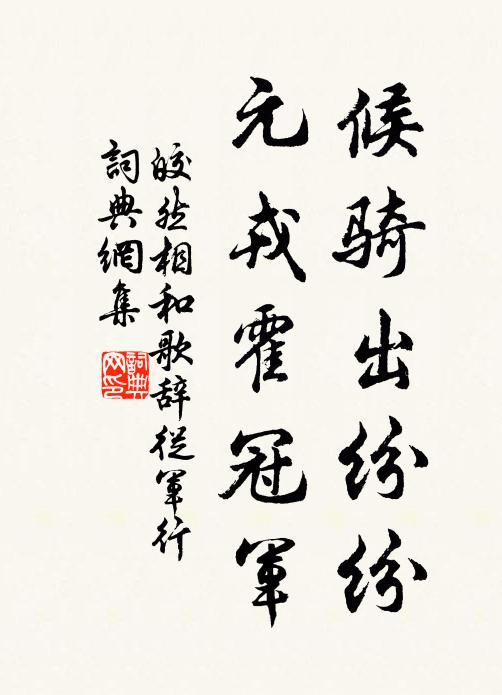 候骑出纷纷
元戎霍冠軍
皎然相和歌辞從軍行
詞典網集
詞典网印